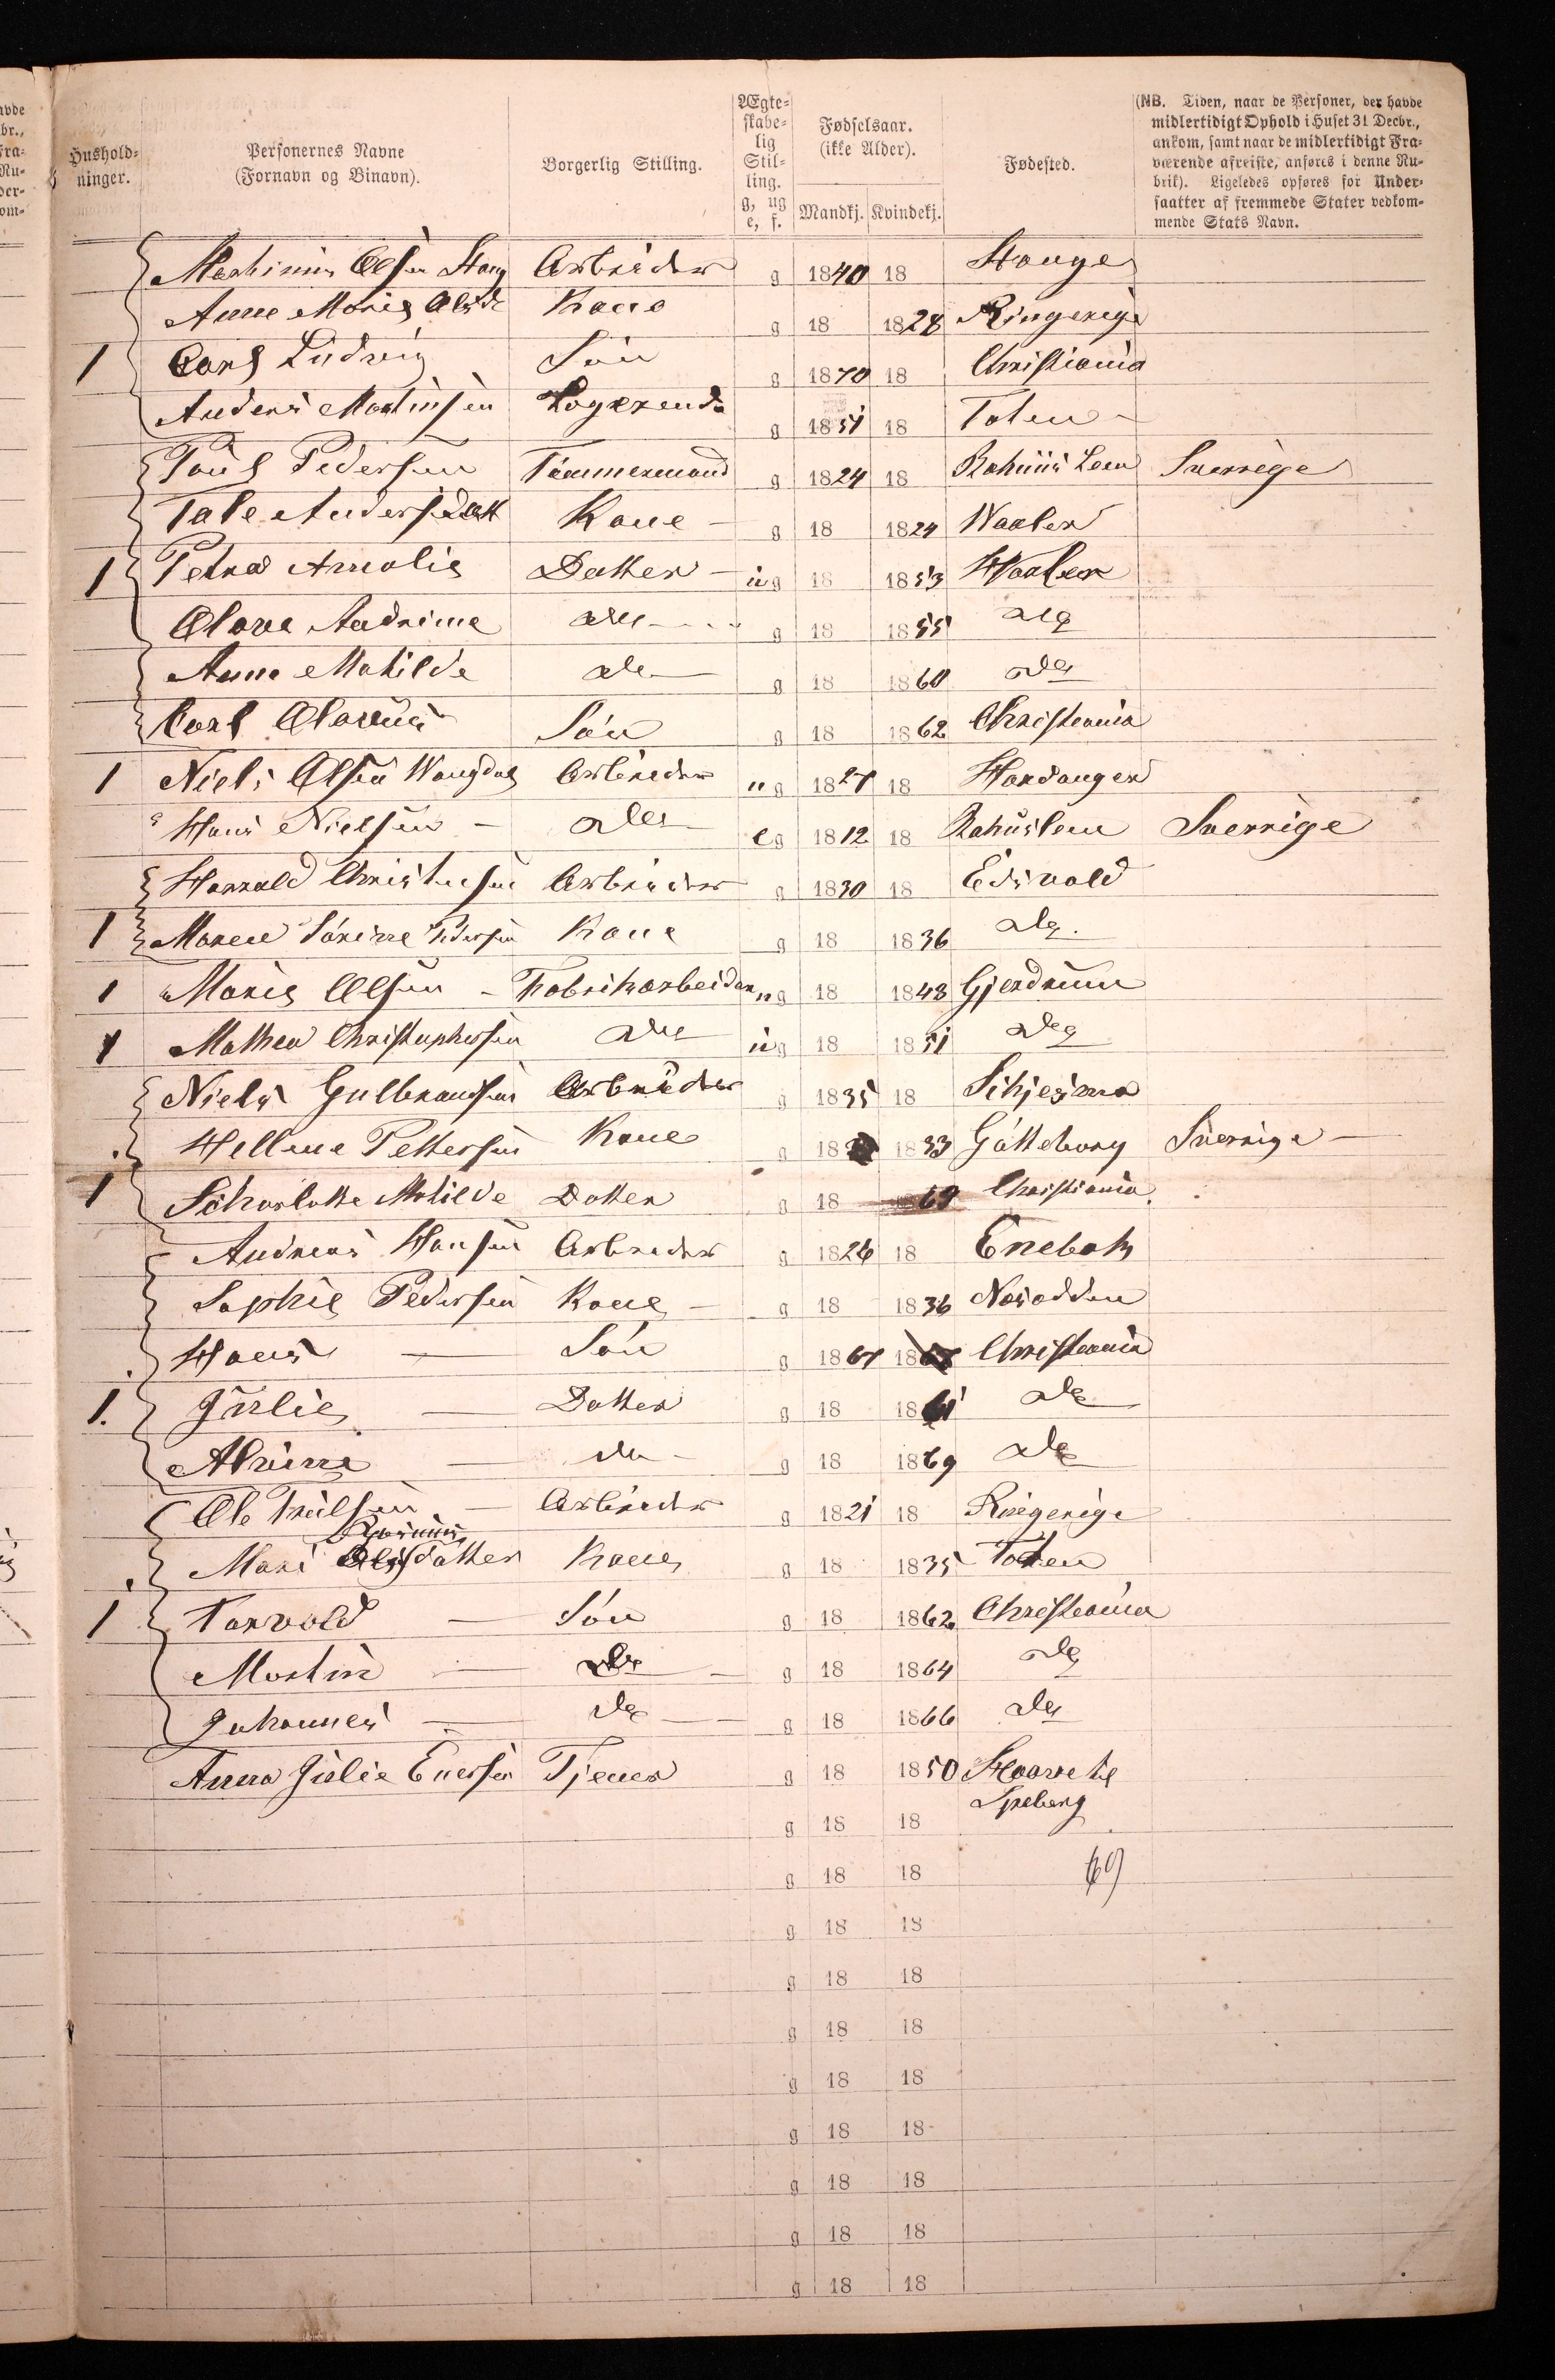 avde
br.,
Fra-
Nu-
der-
om-
Hushold-
ninger.
Personernes Navne
(Fornavn og Binavn).
Borgerlig Stilling.
Ægte-
skabe-
lig
Stil-
ling.
g, ug
e, f.
Fødselsaar.
(ikke Alder).
Mandkj. Kvindekj.
Fødested.
(NB. Tiden, naar de Personer, der havde
midlertidigt Ophold i Huset 31 Decbr.,
ankom, samt naar de midlertidigt Fra-
værende afreiste, anføres i denne Ru-
brik). Ligeledes opføres for Under-
saatter af fremmede Stater vedkom-
mende Stats Navn.
Olsen Stang Arbeider g 1840 18 Stange
Anne Marie Kone g 18 1828 Ringerige
1 Carl Ludvig Søn g 1870 18 Christiania
Anders Martinsen Logerende g 1851 18 Toten
Poul Pedersen Tømmermand g 1824 18 Bahuus Leen Sverrige
Kone g 18 1824 Waaler
1 Petra Amalie Datter ug 18 1853 Waaler
Olava Andrine do g 18 1855 do
Anne Matilde do g 18 1860 do
Carl Olavus Søn g 18 1862 Christiania
1 Niels Olsen Wangdal Arbeider ug 1827 18 Hardanger
Hans Nielsen do eg 1812 18 Bahuslen Sverrige
Harrald Christensen Arbeider g 1830 18 Edsvold
1 Maren Sørine Pedersen Kone g 18 1836 do
1 Marie Olsen Fabrikarbeider ug 18 1848 Gjerdrum
1 Mathea Christophersen do ug 18 1851 do
Niels Gulbrandsen Arbeider g 1835 18 Schjesmo
Hellene Pettersen Kone g 18 1833 Gøtteborg Sverrige
1 Scharlotte Matilde Datter g 18 69 Christiania
Andreas Hansen Arbeider g 1826 18 Enebak
Sophie Pedersen Kone g 18 1836 Næsodden
Hans Søn g 1867 18 Christiania
1. Julie Datter g 18 1861 do
do g 18 1869 do
Ole Arbeider g 1821 18 Ringerige
Rasmus
Mari datter Kone g 18 1835 Toten
1 Torvald Søn g 18 1862 Christiania
Martin do g 18 1864 do
Johannes do g 18 1866 do
Anna Julie Enersen Tjener g 18 1850
g 18 18
g 18 18
g 18 18
g 18 18
g 18 18
g 18 18
g 18 18
g 18 18
g 18 18
g 18 18